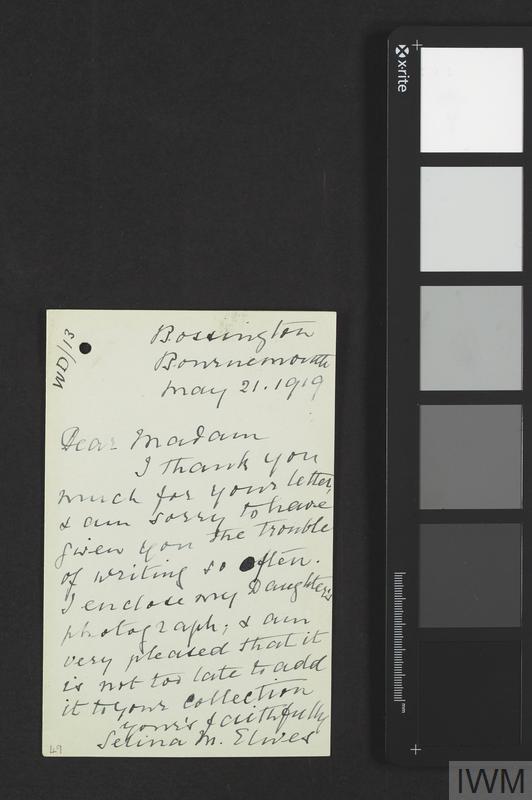 WD/13
Bossington
Bournemouth
May 21. 1919
Dear Madam
I thank you
much for your letter,
& am sorry to have
given you the trouble
of writing so often.
I enclose my Daughter's
photograph; & am
very pleased that it
is not too late to add
it to your collection
yours faithfully
Selina M. Elwes
49
x·rite
mm
IWM